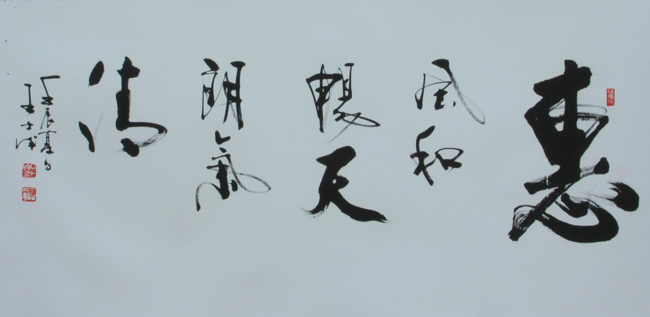 惠
風和
暢天
朗氣
清
壬辰夏日